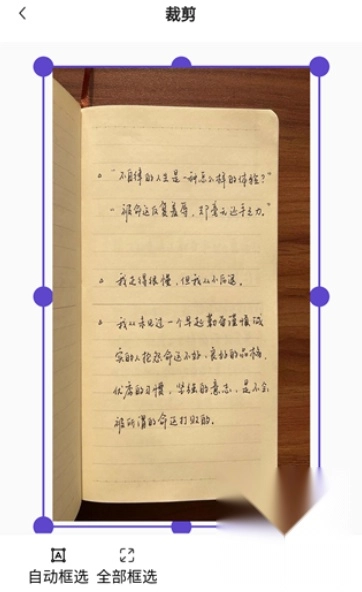 裁剪
。“不自律的人生是一种怎么样的体验？”
“被命运反复羞辱，却毫无还手之力。”
。我走得很慢，但我从不后退。
。我从未见过一个早起勤奋谨慎诚
实的人抱怨命运不好，良好的品格，
优良的习惯，坚强的意志，是不会
被所谓的命运打败的。
自动框选 全部框选